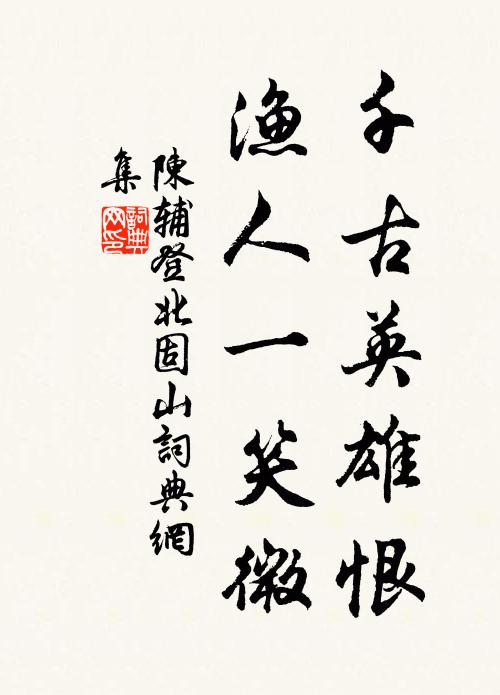 千古英雄恨
漁人一笑微
陳辅登北固山詞典網
集
詞典
网印